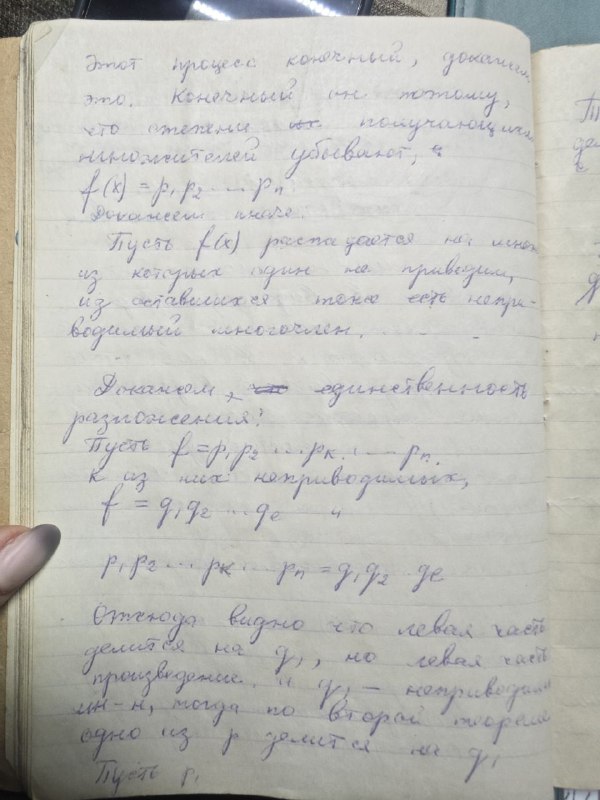 Этот процесс конечный, докажем
это. Конечный он потому,
что степени получающихся
множителей убывают, и
f(x) = p₁ p₂ ... pₙ.
Докажем иначе.
Пусть f(x) распадается на множ
из которых один не приводим,
из оставшихся тоже есть непри-
водимый многочлен.
Докажем, единственность
разложения:
Пусть f = p₁ p₂ ... pₖ ... pₙ.
k из них неприводимых,
f = q₁ q₂ ... qₑ и
p₁ p₂ ... pₖ ... pₙ = q₁ q₂ ... qₑ
Отсюда видно что левая часть
делится на q₁, но левая часть
произведение и q₁ - неприводим
мн-н, тогда по второй теореме
одно из p делится на q₁
Пусть p₁
Т
де